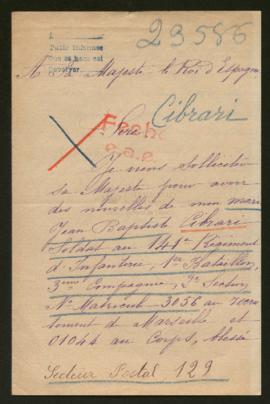 23586
A Sa Majesté le Roi d'Espagne
Cibrari
Sire
Fecho
Je viens solliciter
sa Majesté pour avoir
des nouvelles de mon mari
Jean Baptiste Cibrari
Soldat au 141e Régiment
d'Infanterie, 1er Bataillon,
3eme Compagnie, 3e Section,
No Matricule 3056 au recru
tement de Marseille et
01044 au Corps, blessé
Secteur Postal 129